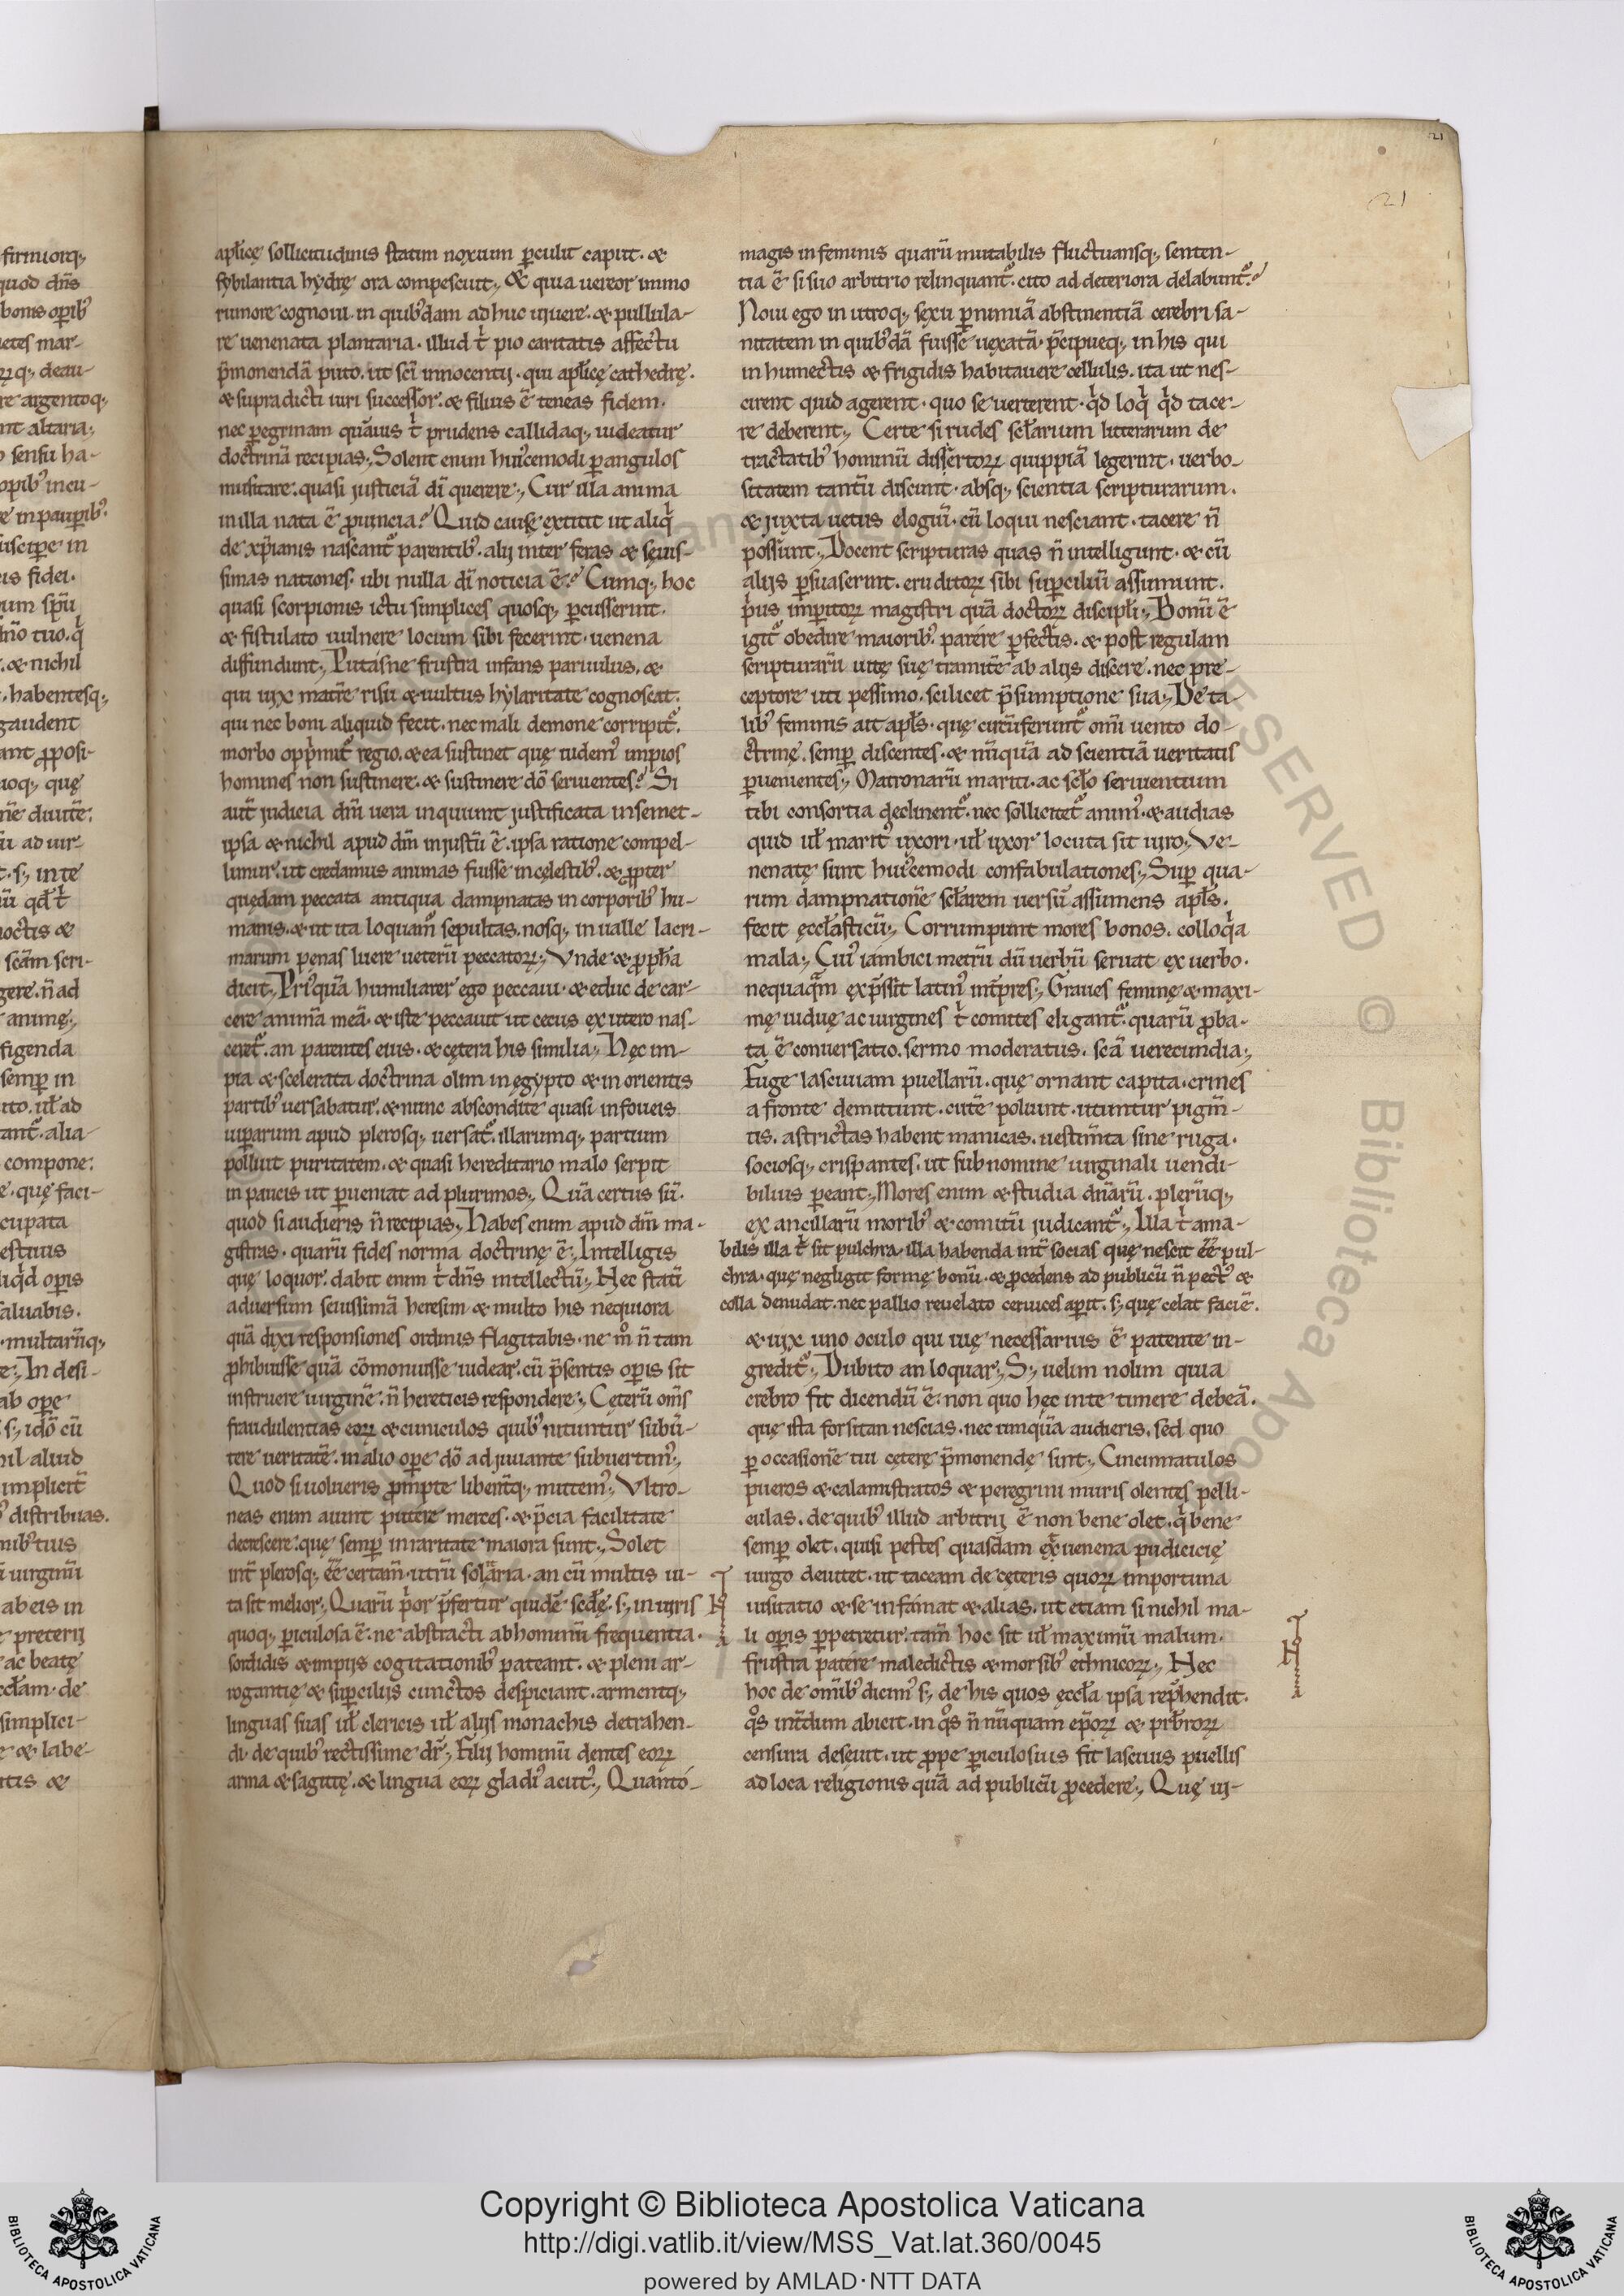 firmiorq;
quod dñs
bonis opib'
etes mar-
rꝝq; deau-
re argentoq;
nt altaria;
sensu ha-
opib' incu-
e in paupib'.
uscipe in
is fidei.
um spũ
dño tuo. q
. & nichil
. habentesq;
gaudent
ant pposi-
uoq; quę
ñe diuite.
ũ ad uir-
. s; in te
ũ qđ
noctis &
scãm scri-
gere. ñ ad
animę;
figenda
semp in
ito. uł ad
ant. alia-
compone.
e. quę faci-
cupata
estuus
liqđ opis
saluabis.
. multarũq;
e; In desi-
ab ope
s; idõ cũ
nil aliud
implicit
distribuas.
nib' tius
ĩ uirginũ
abeis in
e preterij
ac beatę
ccłam. de
simplici-
e & labe-
ntis &
apłicę sollicitudinis statim noxium pculit caput. &
sybilantia hydrę ora compescuit; & quia uereor immo
rumore cognoui. in quib'dam ad huc uiuere. & pullula-
re uenenata plantaria. illud t pio caritatis affectu
p̃monendã puto. ut sci innocentij. qui apłicę cathedrę.
& supradicti uiri successor. & filius ẽ teneas fidem.
nec pegrinam quãuis t prudens callidaq; uideatur
doctrinã recipias; Solent enim hui'cemodi p angulos
musitare. quasi justiciã dĩ querere; Cur illa anima
in illa nata ẽ puincia? Quid causę extitit ut aliq
de xp̃ianis nascant parentib'. alij inter feras & sęuis-
simas nationes. ubi nulla dĩ noticia ẽ? Cumq; hoc
quasi scorpionis ictu simplices quosq; pcusserint.
& fistulato uulnere locum sibi fecerint. uenena
diffundunt; Putasne frustra infans paruulus. &
qui uix matrẽ risu & uultus hylaritate cognoscat.
qui nec boni aliquid fecit. nec mali demone corripit.
morbo opp'mit regio. & ea sustinet quę uidem' impios
homines non sustinere. & sustinere dõ seruientes? Si
aut judicia dm̃ uera inquiunt justificata in semet-
ipsa & nichil apud dm̃ injustũ ẽ. ipsa ratione compel-
limur. ut credamus animas fuisse in cęlestib'. & ppter
quędam peccata antiqua dampnatas in corporib' hu-
manis. & ut ita loquam sepultas. nosq; in ualle lacri-
marum penas luere ueterũ peccatoꝝ; Vnde & ppħa
dicit; Pri'quã humiliarer ego peccaui. & educ de car-
cere animã meã. & iste peccauit ut cecus ex utero nas-
ceret. an parentes eius. & cętera his similia; Hęc im-
pia & scelerata doctrina olim in ęgypto & in orientis
partib' uersabatur. & nunc abscondite quasi in foueis
uiparum apud plerosq; uersat. illarumq; partium
polluit puritatem. & quasi hereditario malo serpit
in paucis ut pueniat ad plurimos; Quã certus sũ.
quod si audieris ñ recipias; Habes enim apud dm̃ ma-
gistras. quarũ fides norma doctrinę ẽ; Intelligis
quę loquor. dabit enim t dñs intellectũ; Hec statĩ
aduersum seuissimã heresim & multo his nequiora
quã dixi responsiones ordinis flagitabis. ne m ñ tam
phibuisse quã cõmonuisse uidear. cũ p̃sentis opis sit
instruere uirginẽ. ñ hereticis respondere; Cęterũ om̃s
fraudulentias eoꝝ & cuniculos quib' nituntur subũ-
tere ueritatẽ. in alio ope dõ adjuuante subuertim';
Quod si uolueris prompte libentq; mittem'; Vltro-
neas enim aiunt putere merces. & p̃cia facilitate
decrescere. quę semp in raritate maiora sunt; Solet
int plerosq; ẽẽ certam̃. utrũ solaria. an cũ multis ui-
ta sit melior; Quarũ p'or p̃fertur quidẽ scdę. s; in uiris
quoq; piculosa ẽ. ne abstracti ab hominũ frequentia.
sordidis & impijs cogitationib' pateant. & pleni ar-
rogantię & supcilijs cunctos despiciant. armentq;
linguas suas uł clericis uł alijs monachis detrahen-
di. de quib' rectissime dr; Filij hominũ dentes eoꝝ
arma & sagittę. & lingua eoꝝ gladi' acut'; Quanto-
21
21
magis in feminis quarũ mutabilis fluctuansq; senten-
tia ẽ si suo arbitrio relinquant. cito ad deteriora delabunt?
Noui ego in utroq; sexu p nimiã abstinentiã cerebri sa-
nitatem in quib'dã fuisse uexatã. p̃cipueq; in his qui
in humectis & frigidis habitauere cellulis. ita ut nes-
cirent quid agerent. quo se uerterent. qd loq qd tace-
re deberent; Certe si rudes scłarium litterarum de
tractatib' hominũ dissertoꝝ quippiã legerint. uerbo-
sitatem tantũ discunt. absq; scientia scripturarum.
& juxta uetus elogiũ. cũ loqui nesciant. tacere ñ
possunt; Docent scripturas quas ñ intelligunt. & cũ
alijs psuaserint. eruditoꝝ sibi supciliũ assumunt.
p'us impitoꝝ magistri quã doctoꝝ discipłi; Bonũ ẽ
igit obedire maiorib'. parere pfectis. & post regulam
scripturarũ uitę suę tramitẽ ab alijs discere. nec pre-
ceptore uti pessimo. scilicet p̃sumptione sua; De ta-
lib' feminis ait apłs. quę circũferunt om̃i uento do-
ctrinę. semp discentes. & nũquã ad scientiã ueritatis
puenientes; Matronarũ mariti. ac scło seruientium
tibi consortia declinent. nec sollicitet anim'. & audias
quid uł marit' uxori. uł uxor locuta sit uiro; Ve-
nenatę sunt hui'cemodi confabulationes; Sup qua-
rum dampnationẽ scłarem uersũ assumens apłs.
fecit ęccłasticũ; Corrumpunt mores bonos. colloqa
mala; Cui' iambici metrũ dũ uerbũ seruat ex uerbo.
nequaq̃m exp̃ssit latin' int̃pres; Graues feminę & maxi-
mę uiduę ac uirgines t comites eligant. quarũ pba-
ta ẽ conuersatio. sermo moderatus. scã uerecundia;
Fuge lasciuiam puellarũ. quę ornant capita. crines
a fronte demittunt. cutẽ poliunt. utuntur pigm̃-
tis. astrictas habent manicas. uestim̃ta sine ruga.
sociosq; crispantes. ut sub nomine uirginali uendi-
bilius peant; Mores enim & studia dñarũ. plerũq;
ex ancillarũ morib' & comitũ judicant; Illa t ama-
bilis illa t sit pulchra. illa habenda int̃ socias quę nescit ẽẽ pul-
chra. quę negligit formę bonũ. & pcedens ad publicũ ñ pect' &
colla denudat. nec pallio reuelato ceruices apit. s; quę celat faciẽ.
& uix uno oculo qui uię necessarius ẽ patente in-
gredit; Dubito an loquar; S; uelim nolim quia
crebro fit dicendũ ẽ. non quo hęc in te timere debeã.
quę ista forsitan nescias. nec umquã audieris. sed quo
p occasionẽ tui cęterę p̃monendę sint; Cincinnatulos
pueros & calamistratos & peregrini muris olentes pelli-
culas. de quib' illud arbitrij ẽ non bene olet. q bene
semp olet. quasi pestes quasdam & uenena pudicicię
uirgo deuitet. ut taceam de cęteris quoꝝ importuna
uisitatio & se infamat & alias. ut etiam si nichil ma-
li opis ppetretur. tam̃ hoc sit uł maximũ malum.
frustra patere maledictis & morsib' ethnicoꝝ; Hec
hoc de omib' dicim' s; de his quos ęccła ipsa rep̃hendit.
q°s int̃dum abicit. in q°s ñ nũquam ep̃oꝝ & prbroꝝ
censura desęuit. ut ppe piculosius sit lasciuis puellis
ad loca religionis quã ad publicũ pcedere; Quę ui-
Copyright © Biblioteca Apostolica Vaticana
http://digi.vatlib.it/view/MSS_Vat.lat.360/0045
powered by AMLAD·NTT DATA
BIBLIOTECA APOSTOLICA VATICANA
BIBLIOTECA APOSTOLICA VATICANA